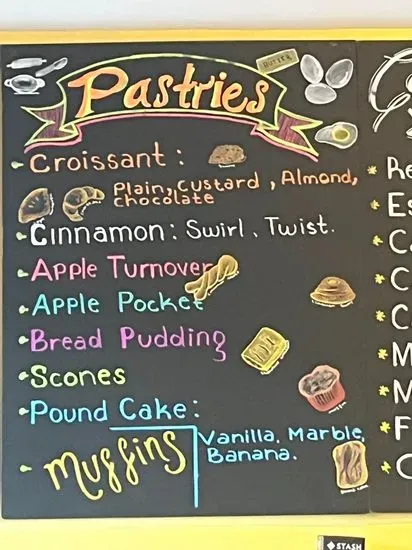 BUTTER
Pastries
Croissant :
Plain, Custard , Almond,
chocolate
Cinnamon: Swirl , Twist.
Apple Turnover
Apple Pocket
Bread Pudding
Scones
Pound Cake:
Vanilla, Marble,
Banana.
Muffins
STASH